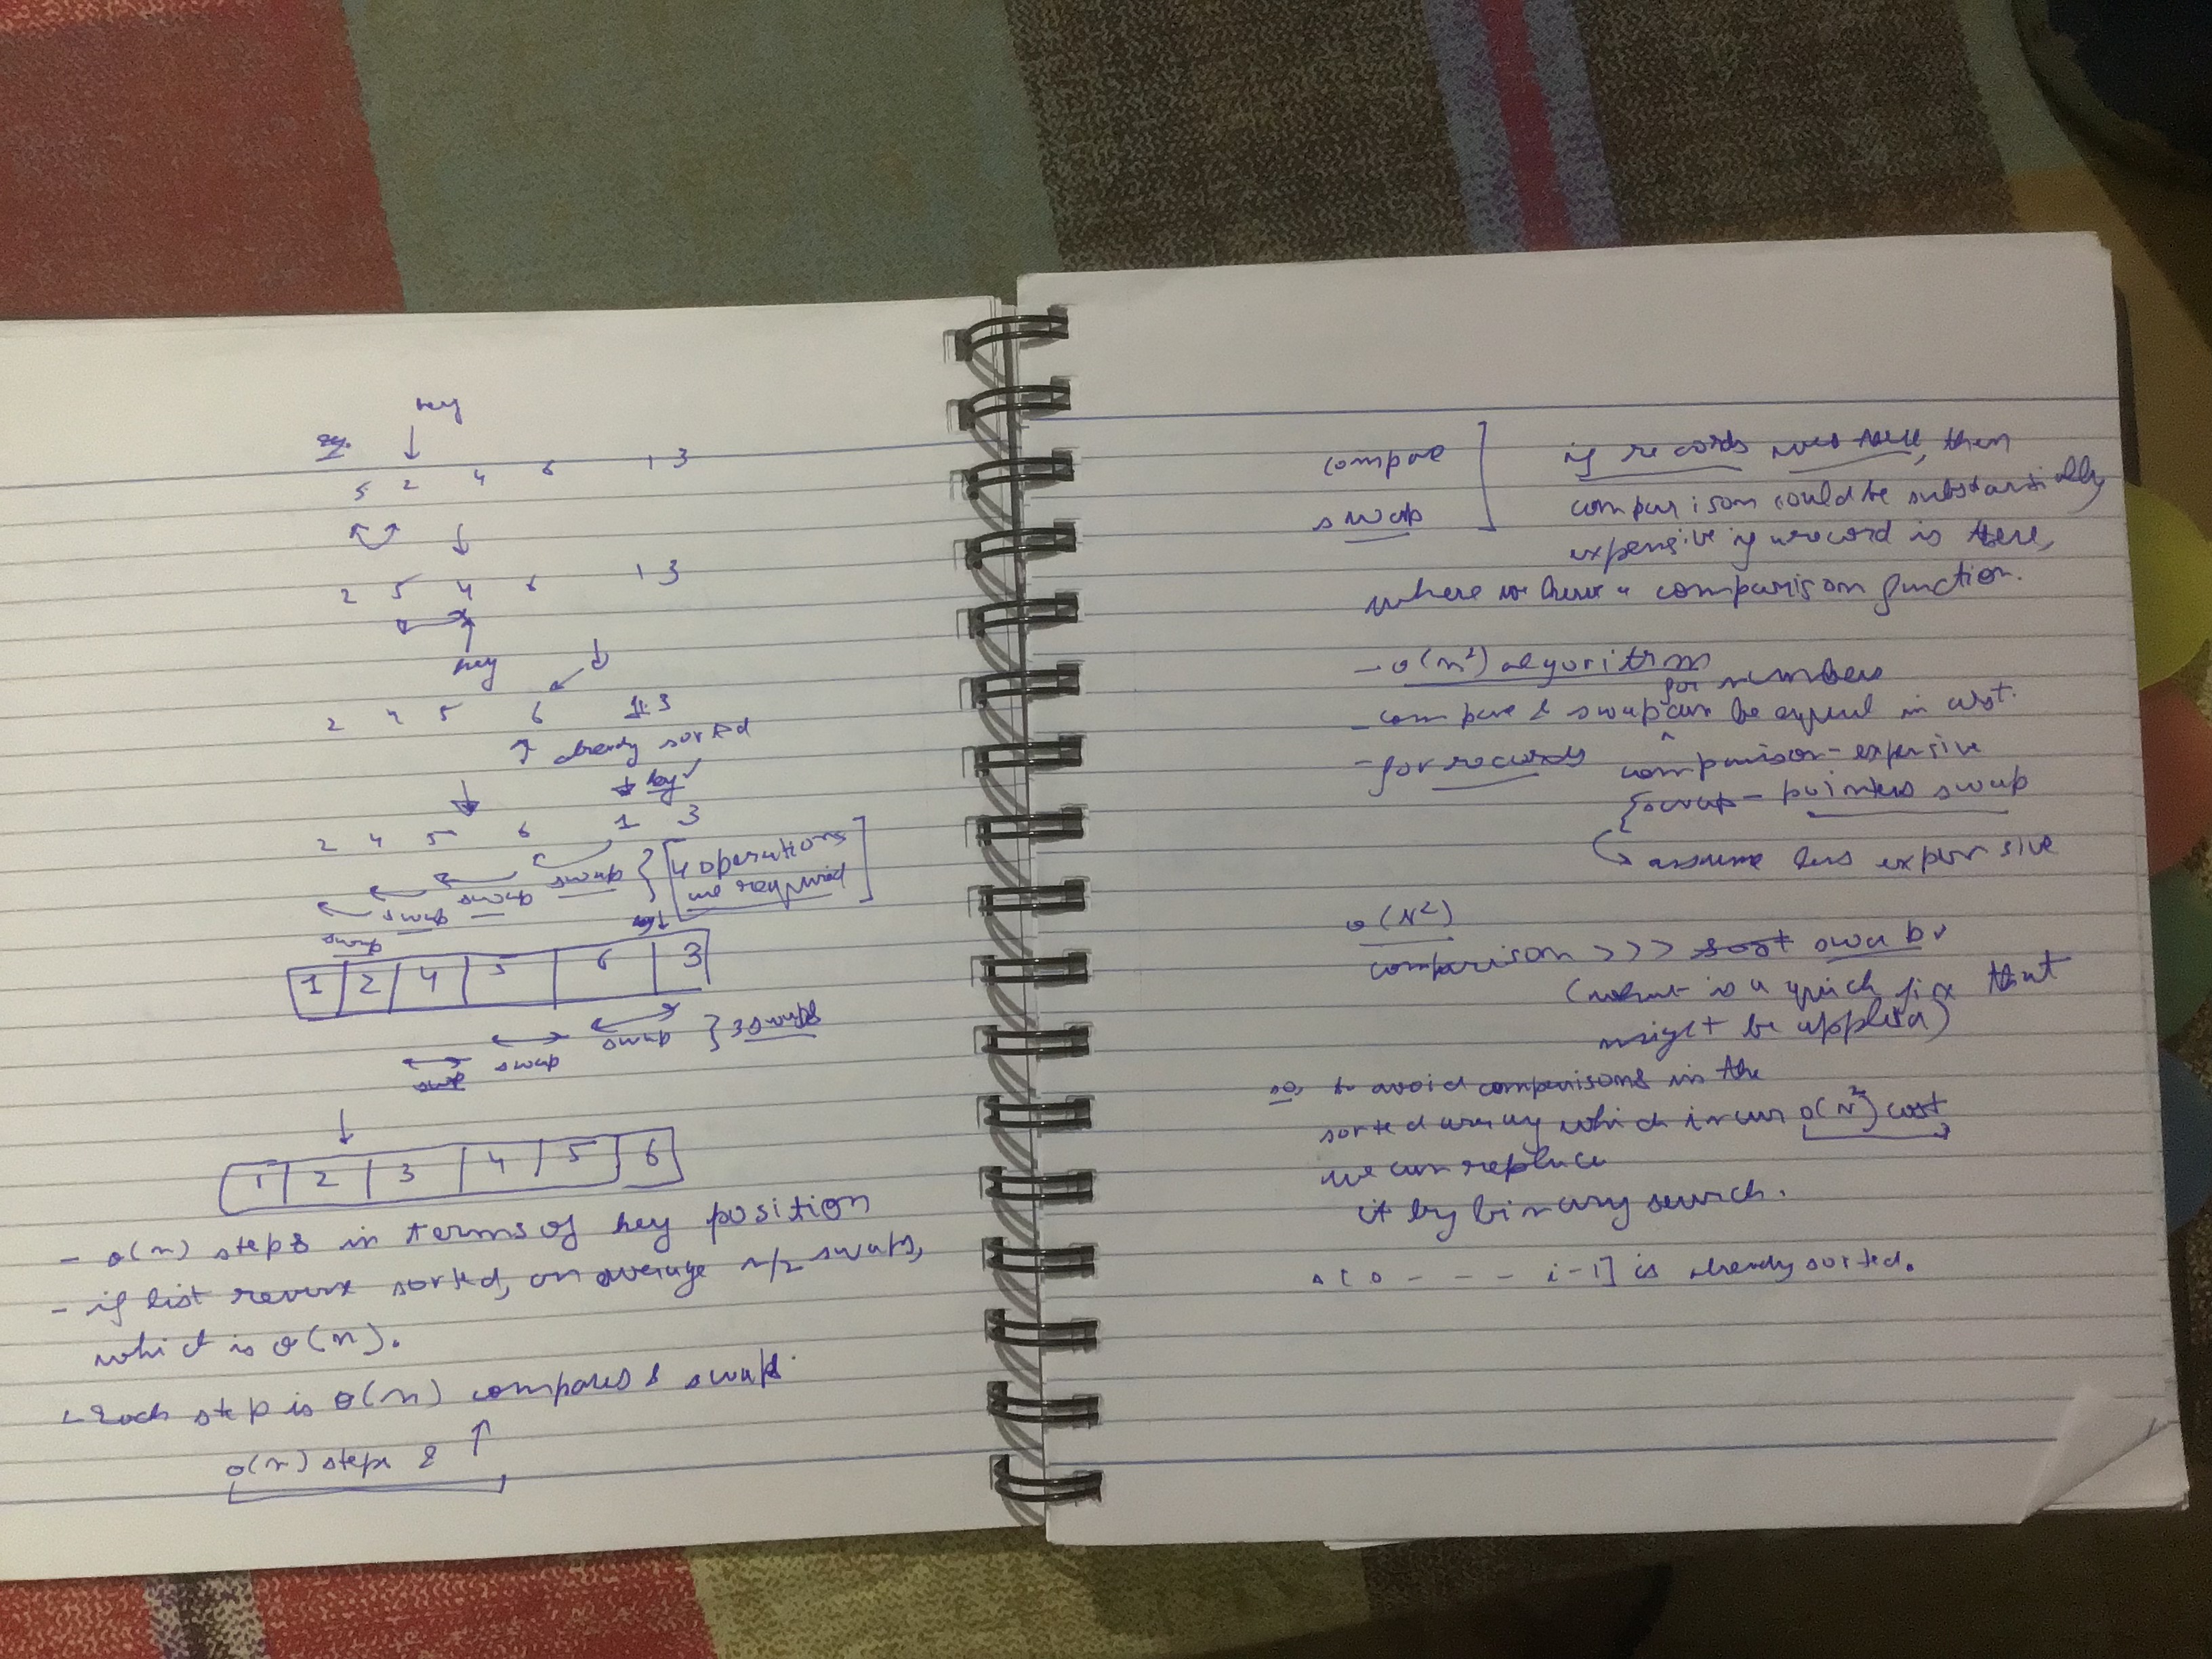 eg. key
5 2 4 6 1 3
2 5 4 6 1 3
key
2 4 5 6 1 3
already sorted
key
2 4 5 6 1 3
swap swap swap swap } [4 operations
are required]
key
1 2 4 5 6 3
swap swap swap } 3 swaps
1 2 3 4 5 6
- θ(n) steps in terms of key position
- if list reverse sorted, on average n/2 swaps,
which is θ(n).
- Each step is θ(n) compares & swaps.
θ(n) steps &
compare
swap
if records then
comparison could be substantially
expensive if record is there,
where we have a comparison function.
- θ(n²) algorithm
for numbers
- compare & swap can be equal in cost.
- for records comparison - expensive
{ swap - pointers swap
assume less expensive
θ(N²)
comparison >>> sort swap
(what is a quick fix that
might be applied)
so, to avoid comparisons in the
sorted array which incur θ(N²) cost
we can replace
it by binary search.
A[0 - - - i-1] is already sorted.